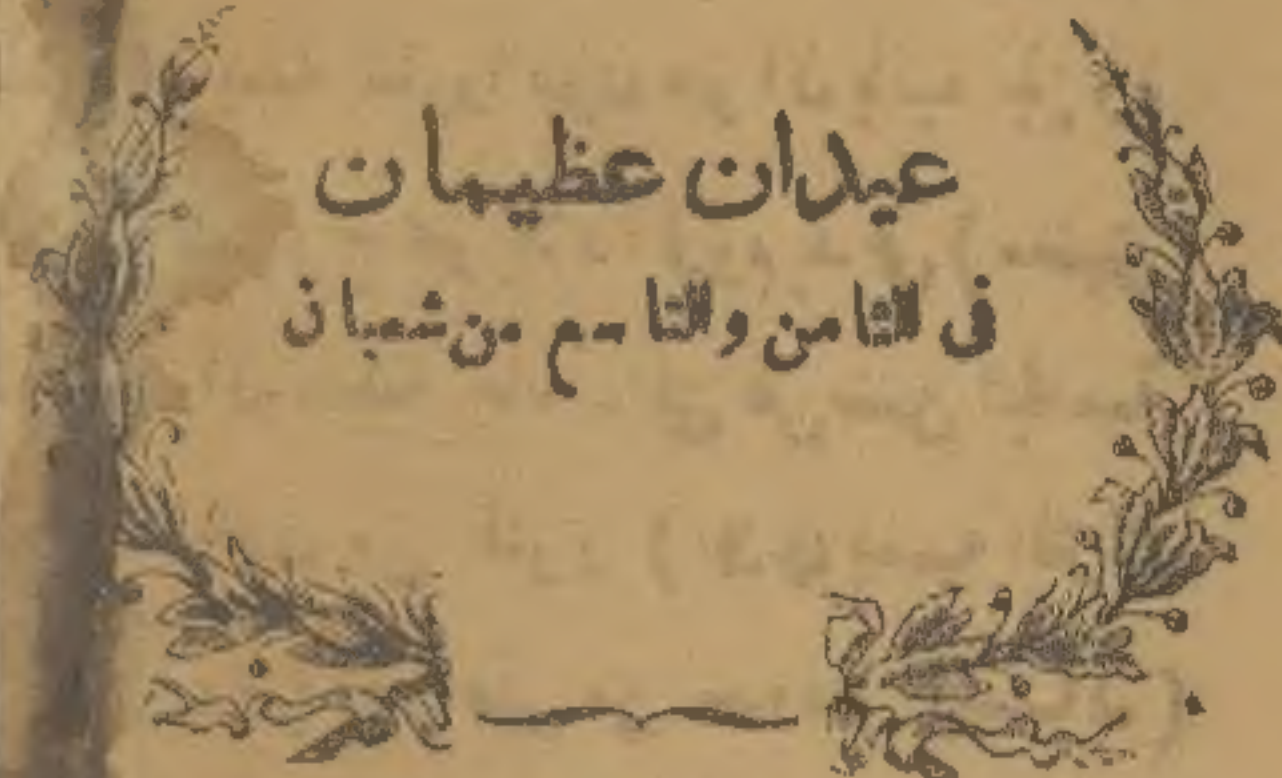 عيدان عظيمان
فى الثامن والتاسع من شعبان